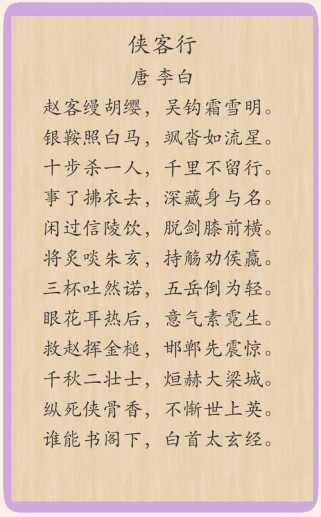 侠客行
唐 李白
赵客缦胡缨，吴钩霜雪明。
银鞍照白马，飒沓如流星。
十步杀一人，千里不留行。
事了拂衣去，深藏身与名。
闲过信陵饮，脱剑膝前横。
将炙啖朱亥，持觞劝侯嬴。
三杯吐然诺，五岳倒为轻。
眼花耳热后，意气素霓生。
救赵挥金槌，邯郸先震惊。
千秋二壮士，烜赫大梁城。
纵死侠骨香，不惭世上英。
谁能书阁下，白首太玄经。